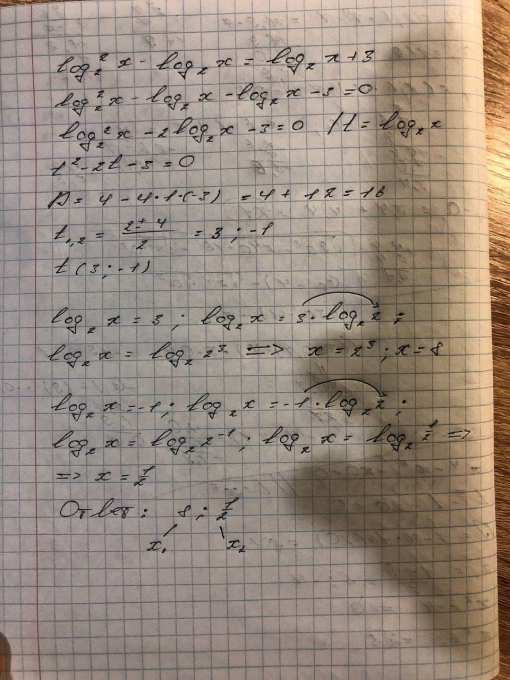 log₂² x - log₂ x = log₂ x + 3
log₂² x - log₂ x - log₂ x - 3 = 0
log₂² x - 2 log₂ x - 3 = 0 / t = log₂ x
t² - 2t - 3 = 0
D = 4 - 4·1·(-3) = 4 + 12 = 16
t₁,₂ = (2 ± 4)/2 = 3 ; -1
t (3 ; -1)
log₂ x = 3 ; log₂ x = 3 · log₂ 2 ;
log₂ x = log₂ 2³ => x = 2³ ; x = 8
log₂ x = -1 ; log₂ x = -1 · log₂ 2 ;
log₂ x = log₂ 2⁻¹ ; log₂ x = log₂ 1/2 =>
=> x = 1/2
Ответ: 8 ; 1/2
x₁ x₂